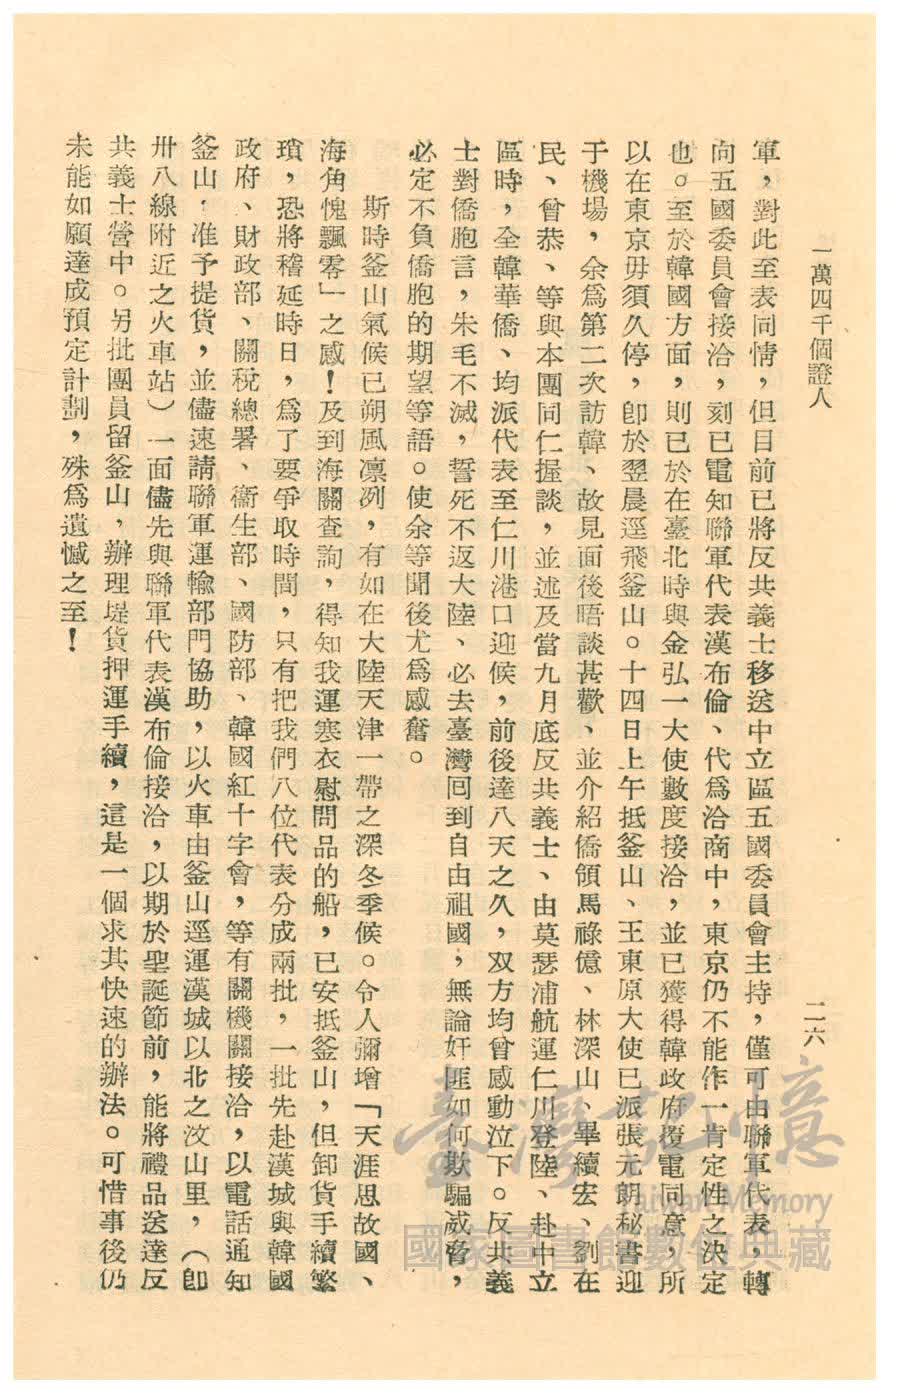 一萬四千個證人
二六
軍，對此至表同情，但目前已將反共義士移送中立區五國委員會主持，僅可由聯軍代表，轉
向五國委員會接洽，刻已電知聯軍代表漢布倫、代爲洽商中，東京仍不能作一肯定性之決定
也。至於韓國方面，則已於在臺北時與金弘一大使數度接洽，並已獲得韓政府覆電同意，所
以在東京毋須久停，卽於翌晨逕飛釜山。十四日上午抵釜山、王東原大使已派張元朗秘書迎
于機場，余爲第二次訪韓、故見面後晤談甚歡、並介紹僑領馬祿億、林深山、畢續宏、劉在
民、曾恭、等與本團同仁握談，並述及當九月底反共義士、由莫瑟浦航運仁川登陸、赴中立
區時，全韓華僑、均派代表至仁川港口迎候，前後達八天之久，双方均曾感動泣下。反共義
士對僑胞言，朱毛不滅，誓死不返大陸、必去臺灣囘到自由祖國，無論奸匪如何欺騙威脅，
必定不負僑胞的期望等語。使余等聞後尤爲感奮。
斯時釜山氣候已朔風凛冽，有如在大陸天津一帶之深冬季候。令人彌增「天涯思故國、
海角愧飄零」之感！及到海關查詢，得知我運寒衣慰問品的船，已安抵釜山，但卸貨手續繁
瑣，恐將稽延時日，爲了要爭取時間，只有把我們八位代表分成兩批，一批先赴漢城與韓國
政府、財政部、關稅總署、衞生部、國防部、韓國紅十字會，等有關機關接洽，以電話通知
釜山，准予提貨，並儘速請聯軍運輸部門協助，以火車由釜山逕運漢城以北之汶山里，（卽
卅八線附近之火車站）一面儘先與聯軍代表漢布倫接洽，以期於聖誕節前，能將禮品送達反
共義士營中。另批團員留釜山，辦理堤貨押運手續，這是一個求其快速的辦法。可惜事後仍
未能如願達成預定計劃，殊爲遺憾之至！
臺灣記憶
Taiwan Memory
國家圖書館數位典藏